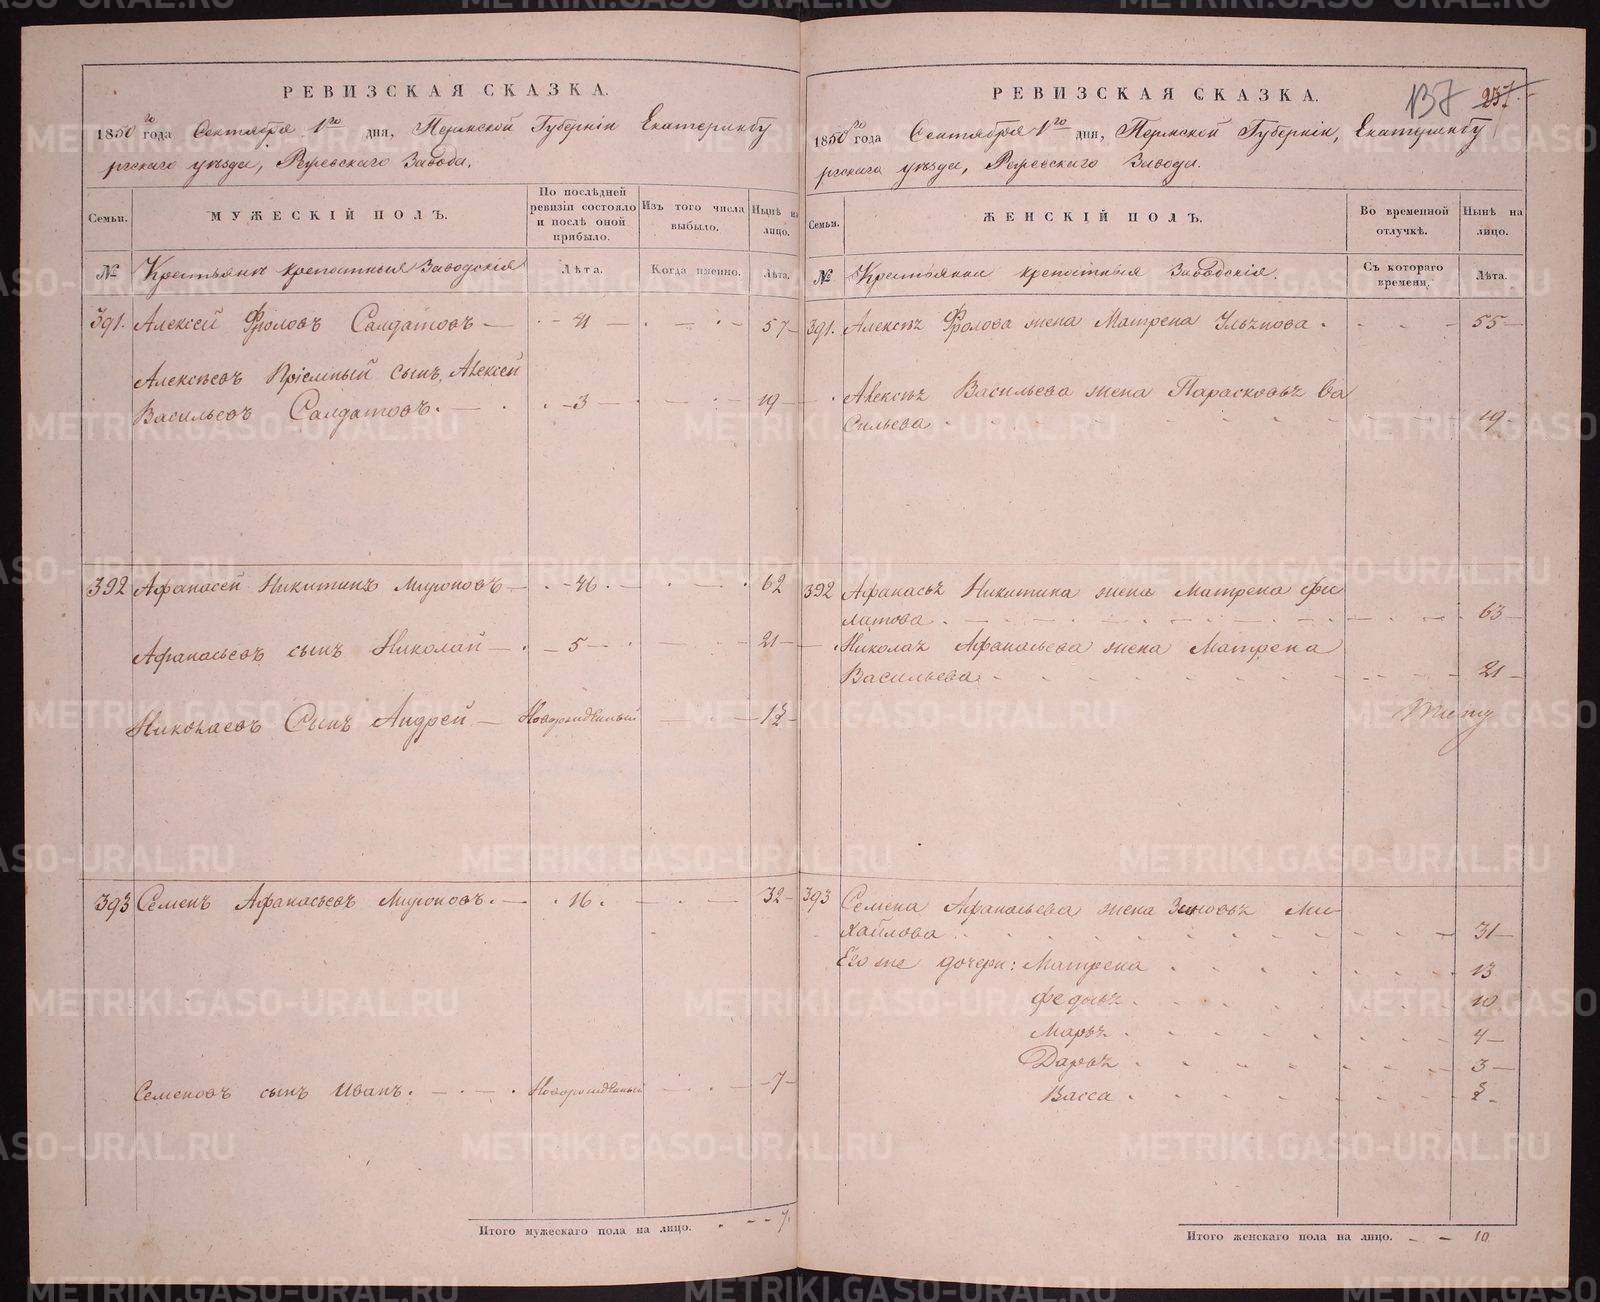 РЕВИЗСКАЯ СКАЗКА.
1850го года Сентября 1го дня, Пермской Губерніи Екатеринбу
ргскаго уѣзда, Режевскаго Завода.
Семьи.
МУЖЕСКІЙ ПОЛЪ.
По послѣдней ревизіи состояло и послѣ оной прибыло.
Изъ того числа выбыло.
Нынѣ на лицо.
№
Крестьяне крепостныя Заводскія
Лѣта.
Когда именно.
Лѣта.
391. Алексей Фроловъ Салдатовъ — 41 — 57
Алексѣевъ Пріемный сынъ, Алексей
Васильевъ Салдатовъ. — 3 — 19
392 Афанасей Никитинъ Мироновъ — 46 — 62
Афанасьевъ сынъ Николай — 5 — 21
Николаевъ Сынъ Андрей — Новорожденный — 1½
393 Семенъ Афанасьевъ Мироновъ. — 16. — 32
Семеновъ сынъ Иванъ. — Новорожденный — 7
Итого мужескаго пола на лицо. — 7.
137 237
РЕВИЗСКАЯ СКАЗКА.
1850го года Сентября 1го дня, Пермской Губерніи, Екатеринбу
ргскаго уѣзда, Режевскаго Завода.
Семьи.
ЖЕНСКІЙ ПОЛЪ.
Во временной отлучкѣ.
Нынѣ на лицо.
№
Крестьянки крепостныя Заводскія.
Съ котораго времени.
Лѣта.
391. Алексѣя Фролова жена Матрена Ульянова. — 55
Алексѣя Васильева жена Парасковья Ва
сильева — 19
392 Афанасья Никитина жена Матрена Фи
липова. — 63
Николая Афанасьева жена Матрена
Васильева — 21
393 Семена Афанасьева жена Зиновья Ми
хайлова — 31
Его же дочери: Матрена — 13
Федосья — 10
Марья — 4
Дарья — 3
Васса — ½
Итого женскаго пола на лицо. — 10
METRIKI.GASO-URAL.RU